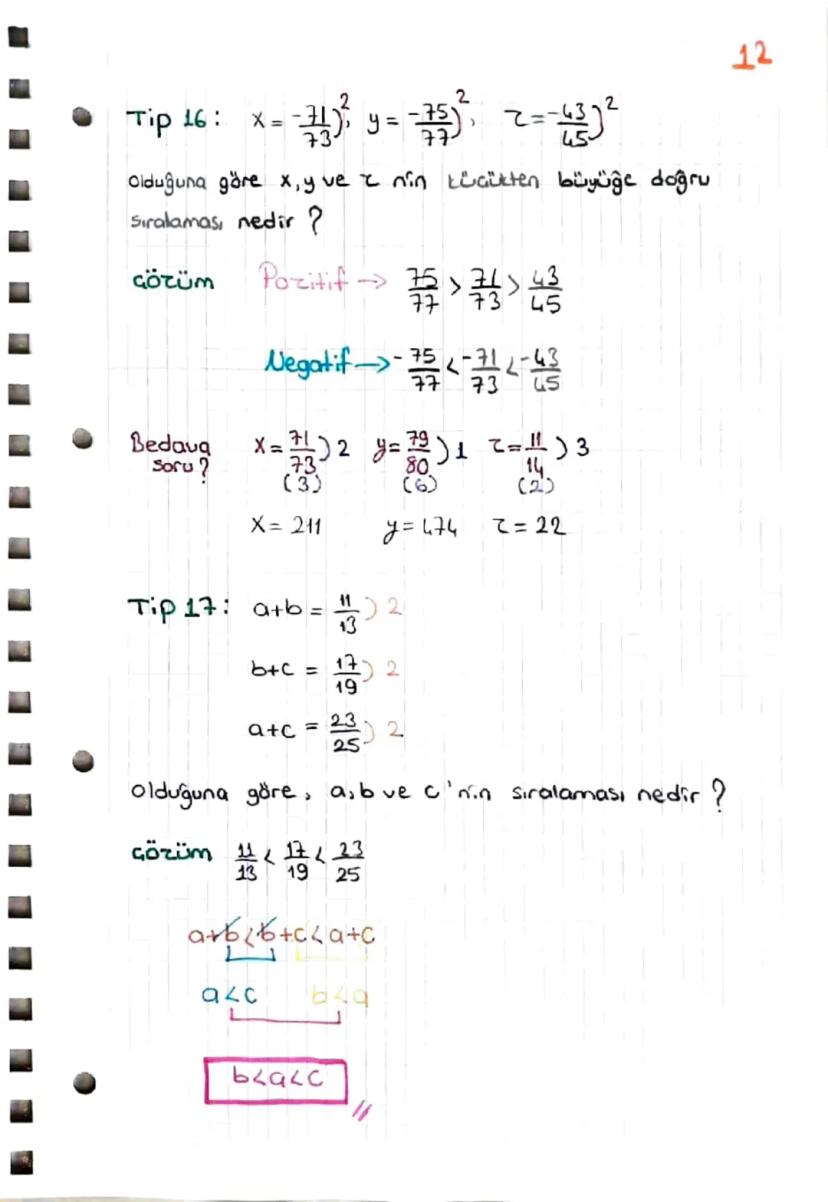 12
Tip 16: x = -71/73)2, y = -75/77)2, z = -43/45)2
olduğuna göre x, y ve z nin küçükten büyüğe doğru
sıralaması nedir ?
Çözüm Pozitif -> 75/77 > 71/73 > 43/45
Negatif -> -75/77 < -71/73 < -43/45
Bedava soru? x = 71/73)2 y = 79/80)1 z = 11/14)3
(3) (6) (2)
x = 211 y = 474 z = 22
Tip 17: a+b = 11/13)2
b+c = 17/19)2
a+c = 23/25)2
olduğuna göre, a, b ve c'nin sıralaması nedir ?
Çözüm 11/13 < 17/19 < 23/25
a+b<b+c<a+c
a<c b<a
b<a<c //